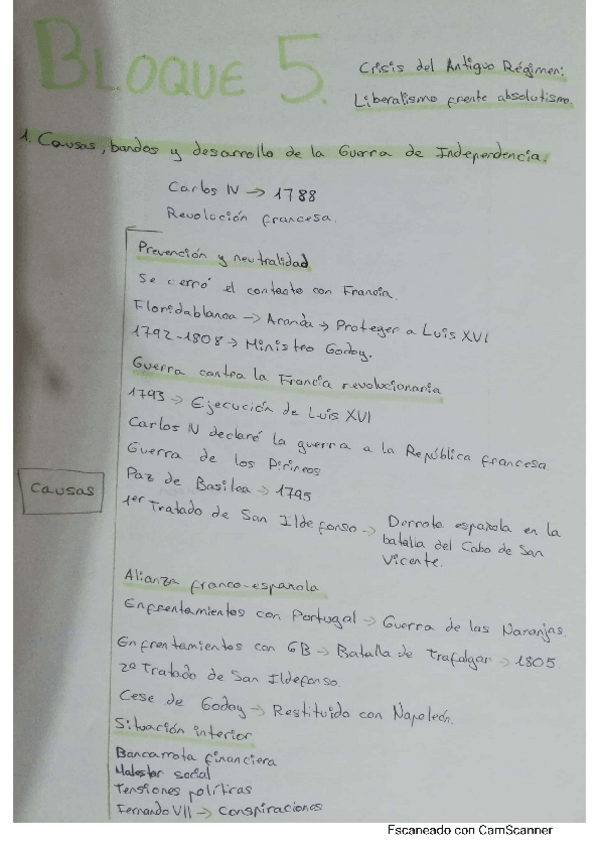 BLOQUE 5.
Crisis del Antiguo Régimen:
Liberalismo frente absolutismo.
1. Causas, bandos y desarrollo de la Guerra de Independencia.
Carlos IV → 1788
Revolución francesa.
Prevención y neutralidad
Se cerró el contacto con Francia.
Floridablanca → Aranda → Proteger a Luis XVI
1792-1808 → Ministro Godoy.
Guerra contra la Francia revolucionaria
1793 → Ejecución de Luis XVI
Carlos IV declaró la guerra a la República francesa.
Guerra de los Pirineos
Paz de Basilea → 1795
1er Tratado de San Ildefonso → Derrota española en la
batalla del Cabo de San
Vicente.
Causas
Alianza franco-española
Enfrentamientos con Portugal → Guerra de las Naranjas.
Enfrentamientos con GB → Batalla de Trafalgar → 1805
2º Tratado de San Ildefonso.
Cese de Godoy → Restituido con Napoleón.
Situación interior
Bancarrota financiera
Malestar social
Tensiones políticas
Fernando VII → Conspiraciones
Escaneado con CamScanner